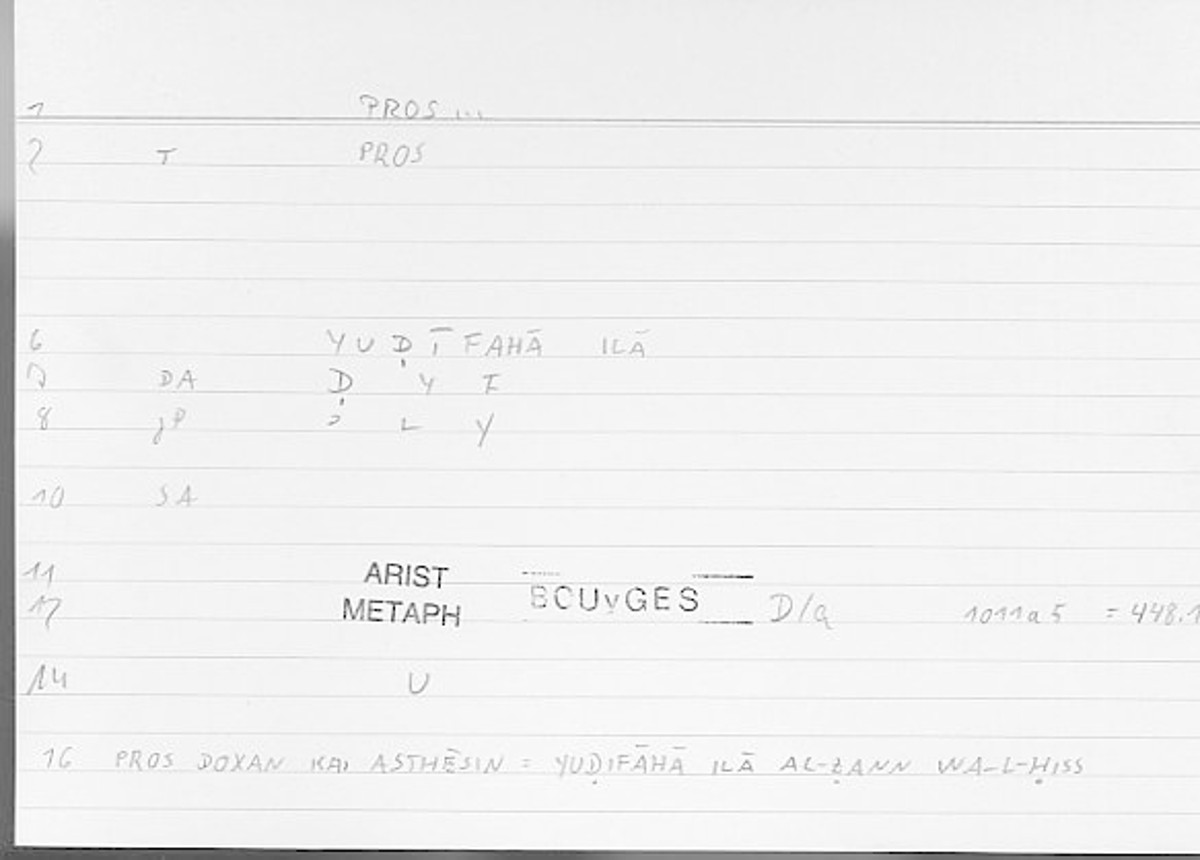 1 PROS ...
2 T PROS
6 YUḌĪFAHĀ ILĀ
7 DA Ḍ Y F
8 JP ʾ L Y
10 SA
11 ARIST
12 METAPH BOUYGES D/a 1011a5 = 448.1
14 U
16 PROS DOXAN KAI ASTHĒSIN = YUḌIFĀHĀ ILĀ AL-ẒANN WA-L-ḤISS